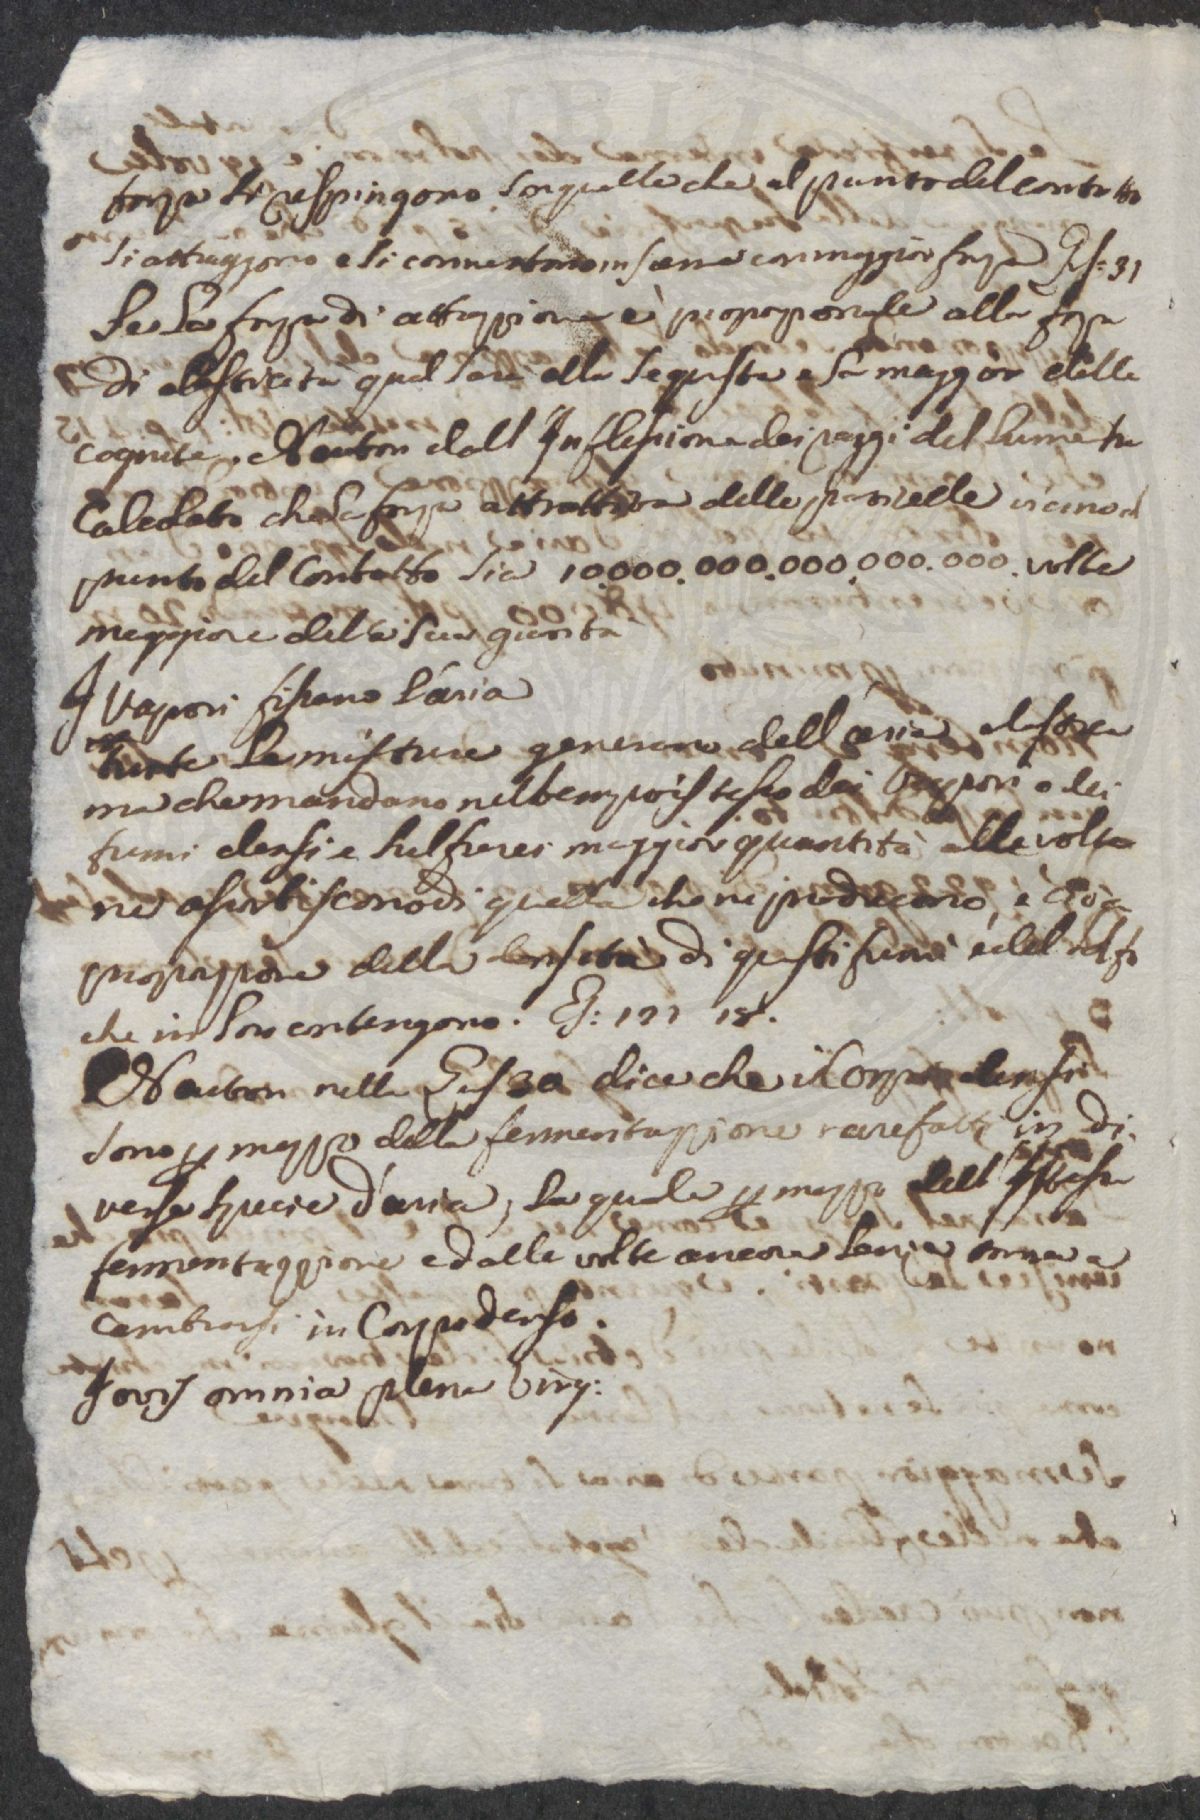 forza si respingono son quelle che al punto del contatto
si attraggono e si connettono insieme con maggior forza Ques: 31
Se la forza di attrazzione è proporzionale alla forza
di elasticità qual sarà ella se questa è la maggior delle
cognite. Neuton dall Inflessione dei raggi del lume ha
Calcolato che la forza attrattiva delle particelle vicino al
punto del Contatto sia 10.000.000.000.000.000. volte
maggiore della sua gravità
I Vapori fissano l'aria
tutte le misture generano dell'aria elastica
ma che mandano nel tempo istesso dei Vapori o dei
fumi densi e sulfurei maggior quantità alle volte
ne assorbiscono di quella che ne producono, e ciò a
proporzione della densità di questi fumi e del solfo
che in loro contengono. 18.
Neuton nella Ques 30 dice che i Corpi densi
sono p mezzo della fermentazzione rarefatti in di
verse spezie d'aria, la quale p mezzo dell' istessa
fermentazzione ed alle volte ancora senza torna a
cambiarsi in Corpo denso.
Jovis omnia plena Virg: